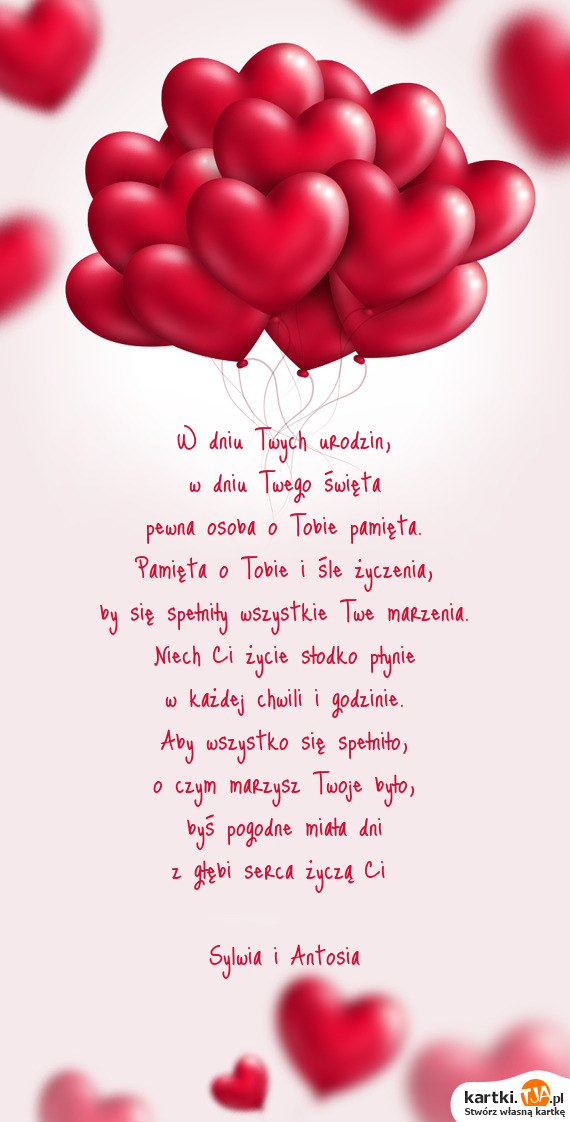 W dniu Twych urodzin,
w dniu Twego święta
pewna osoba o Tobie pamięta.
Pamięta o Tobie i śle życzenia,
by się spełniły wszystkie Twe marzenia.
Niech Ci życie słodko płynie
w każdej chwili i godzinie.
Aby wszystko się spełniło,
o czym marzysz Twoje było,
byś pogodne miała dni
z głębi serca życzą Ci
Sylwia i Antosia
kartki.TJA.pl
Stwórz własną kartkę